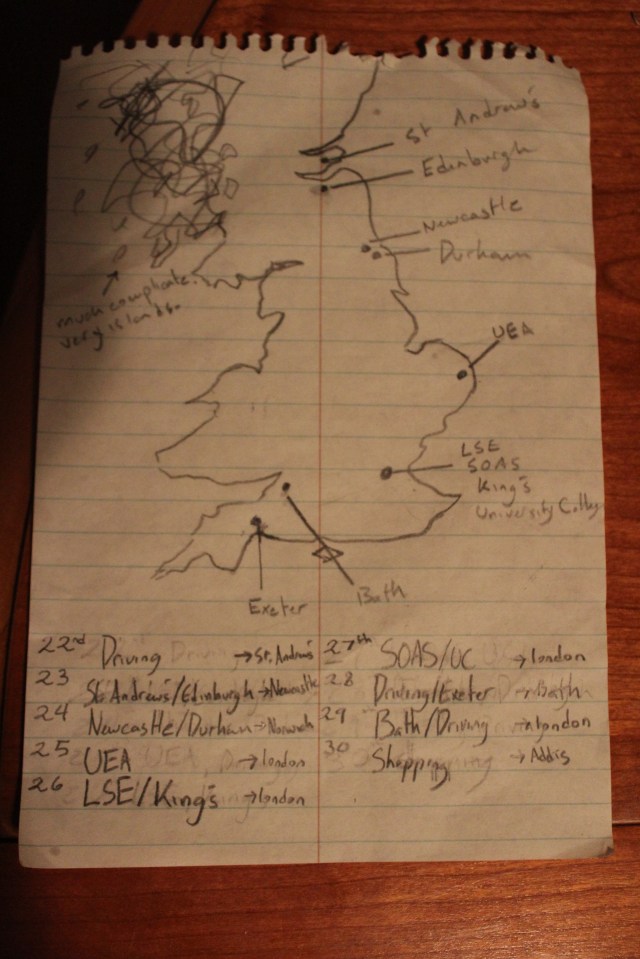 St Andrew's
Edinburgh
Newcastle
Durham
much complicate.
very islands.
UEA
LSE
SOAS
King's
University Colleg
Bath
Exeter
22nd Driving → St. Andrew's
23 St Andrew's/Edinburgh → Newcastle
24 Newcastle/Durham → Norwich
25 UEA → london
26 LSE/King's → london
27th SOAS/UC → london
28 Driving/Exeter → Bath
29 Bath/Driving → london
30 Shopping → Addis